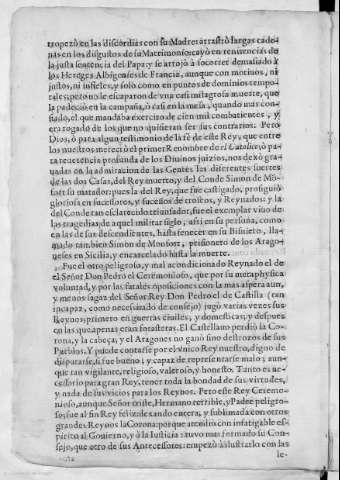 tropezò en las discordias con su Madre: arrastrò largas cade-
nas en los disgustos de su Matrimonio: cayò en renuncias de
la justa sentencia del Papa: y se arrojò à socorrer demasiado à
los Hereges Albigenses de Francia, aunque con motinos, ni
justos, ni infieles, y solo como en puntos de dominios tempo-
rales; pero no le escaparon de vna casi milagrosa muerte, que
la padeciò en la campaña, ò casi en la mesa, quando mas con-
fiado, el que mandaba exercito de cien mil combatientes, y
era rogado de los que no quisieran ser sus contrarios. Pero
Dios, ò para algun testimonio de la fè de este Rey, que entre
los nuestros mereciò el primer Renombre de el Catolico; ò pa-
ra reuerencia profunda de los Diuinos juizios, nos dexò gra-
uadas en la admiracion de las Gentes las diferentes suertes
de las dos Casas, del Rey muerto, y del Conde Simon de Mõ-
fort su matador: pues la del Rey, que fue castigado, prosiguiò
gloriosa en sucessores, y sucessos de trofeos, y Reynados: y la
del Conde tan esclarecido triunfador, fue el exemplar viuo de
las tragedias, de aquel militar siglo, assi en su persona, como
en las de sus descendientes, hasta fenecer en su Bisnieto, lla-
mado tambien Simon de Monfort, prisionero de los Arago-
neses en Sicilia, y encarcelado hasta la muerte.
Fue el otro peligroso, y mal acondicionado Reynado el de
el Señor Don Pedro el Ceremonioso, que por su metaphysica
voluntad, y por las fatales oposiciones con la mas aspera aun,
y menos sagaz del Señor Rey Don Pedro el de Castilla (tan
incapaz, como necesitado de consejo) jugò varias vezes sus
Reynos; primero en guerras ciuiles, y domesticas, y despues
en las que apenas eran forasteras. El Castellano perdiò la Co-
rona, y la cabeça; y el Aragones no ganò sino destrozos de sus
Pueblos. Y puede contarse por el vnico Rey nuestro, digno de
disputarse, si fue bueno; y capaz de representarse malo; aun-
que tan vigilante, religioso, valeroso, y honesto. Tanto es ne-
cessario para gran Rey, tener toda la bondad de sus virtudes,
y nada de sus vicios para los Reynos. Pero este Rey Ceremo-
nioso, aunque Señor triste, Hermano terrible, y Padre peligro-
so; fue al fin Rey feliz dexando entera, y sublimada con otros
grandes Reynos la Corona: porque atendiò con infatigable es-
piritu al Gouierno, y à la Iusticia: tuvo mas formado su Con-
sejo, que otro de sus Antecessores: empezò à ilustrarlo con las
le-